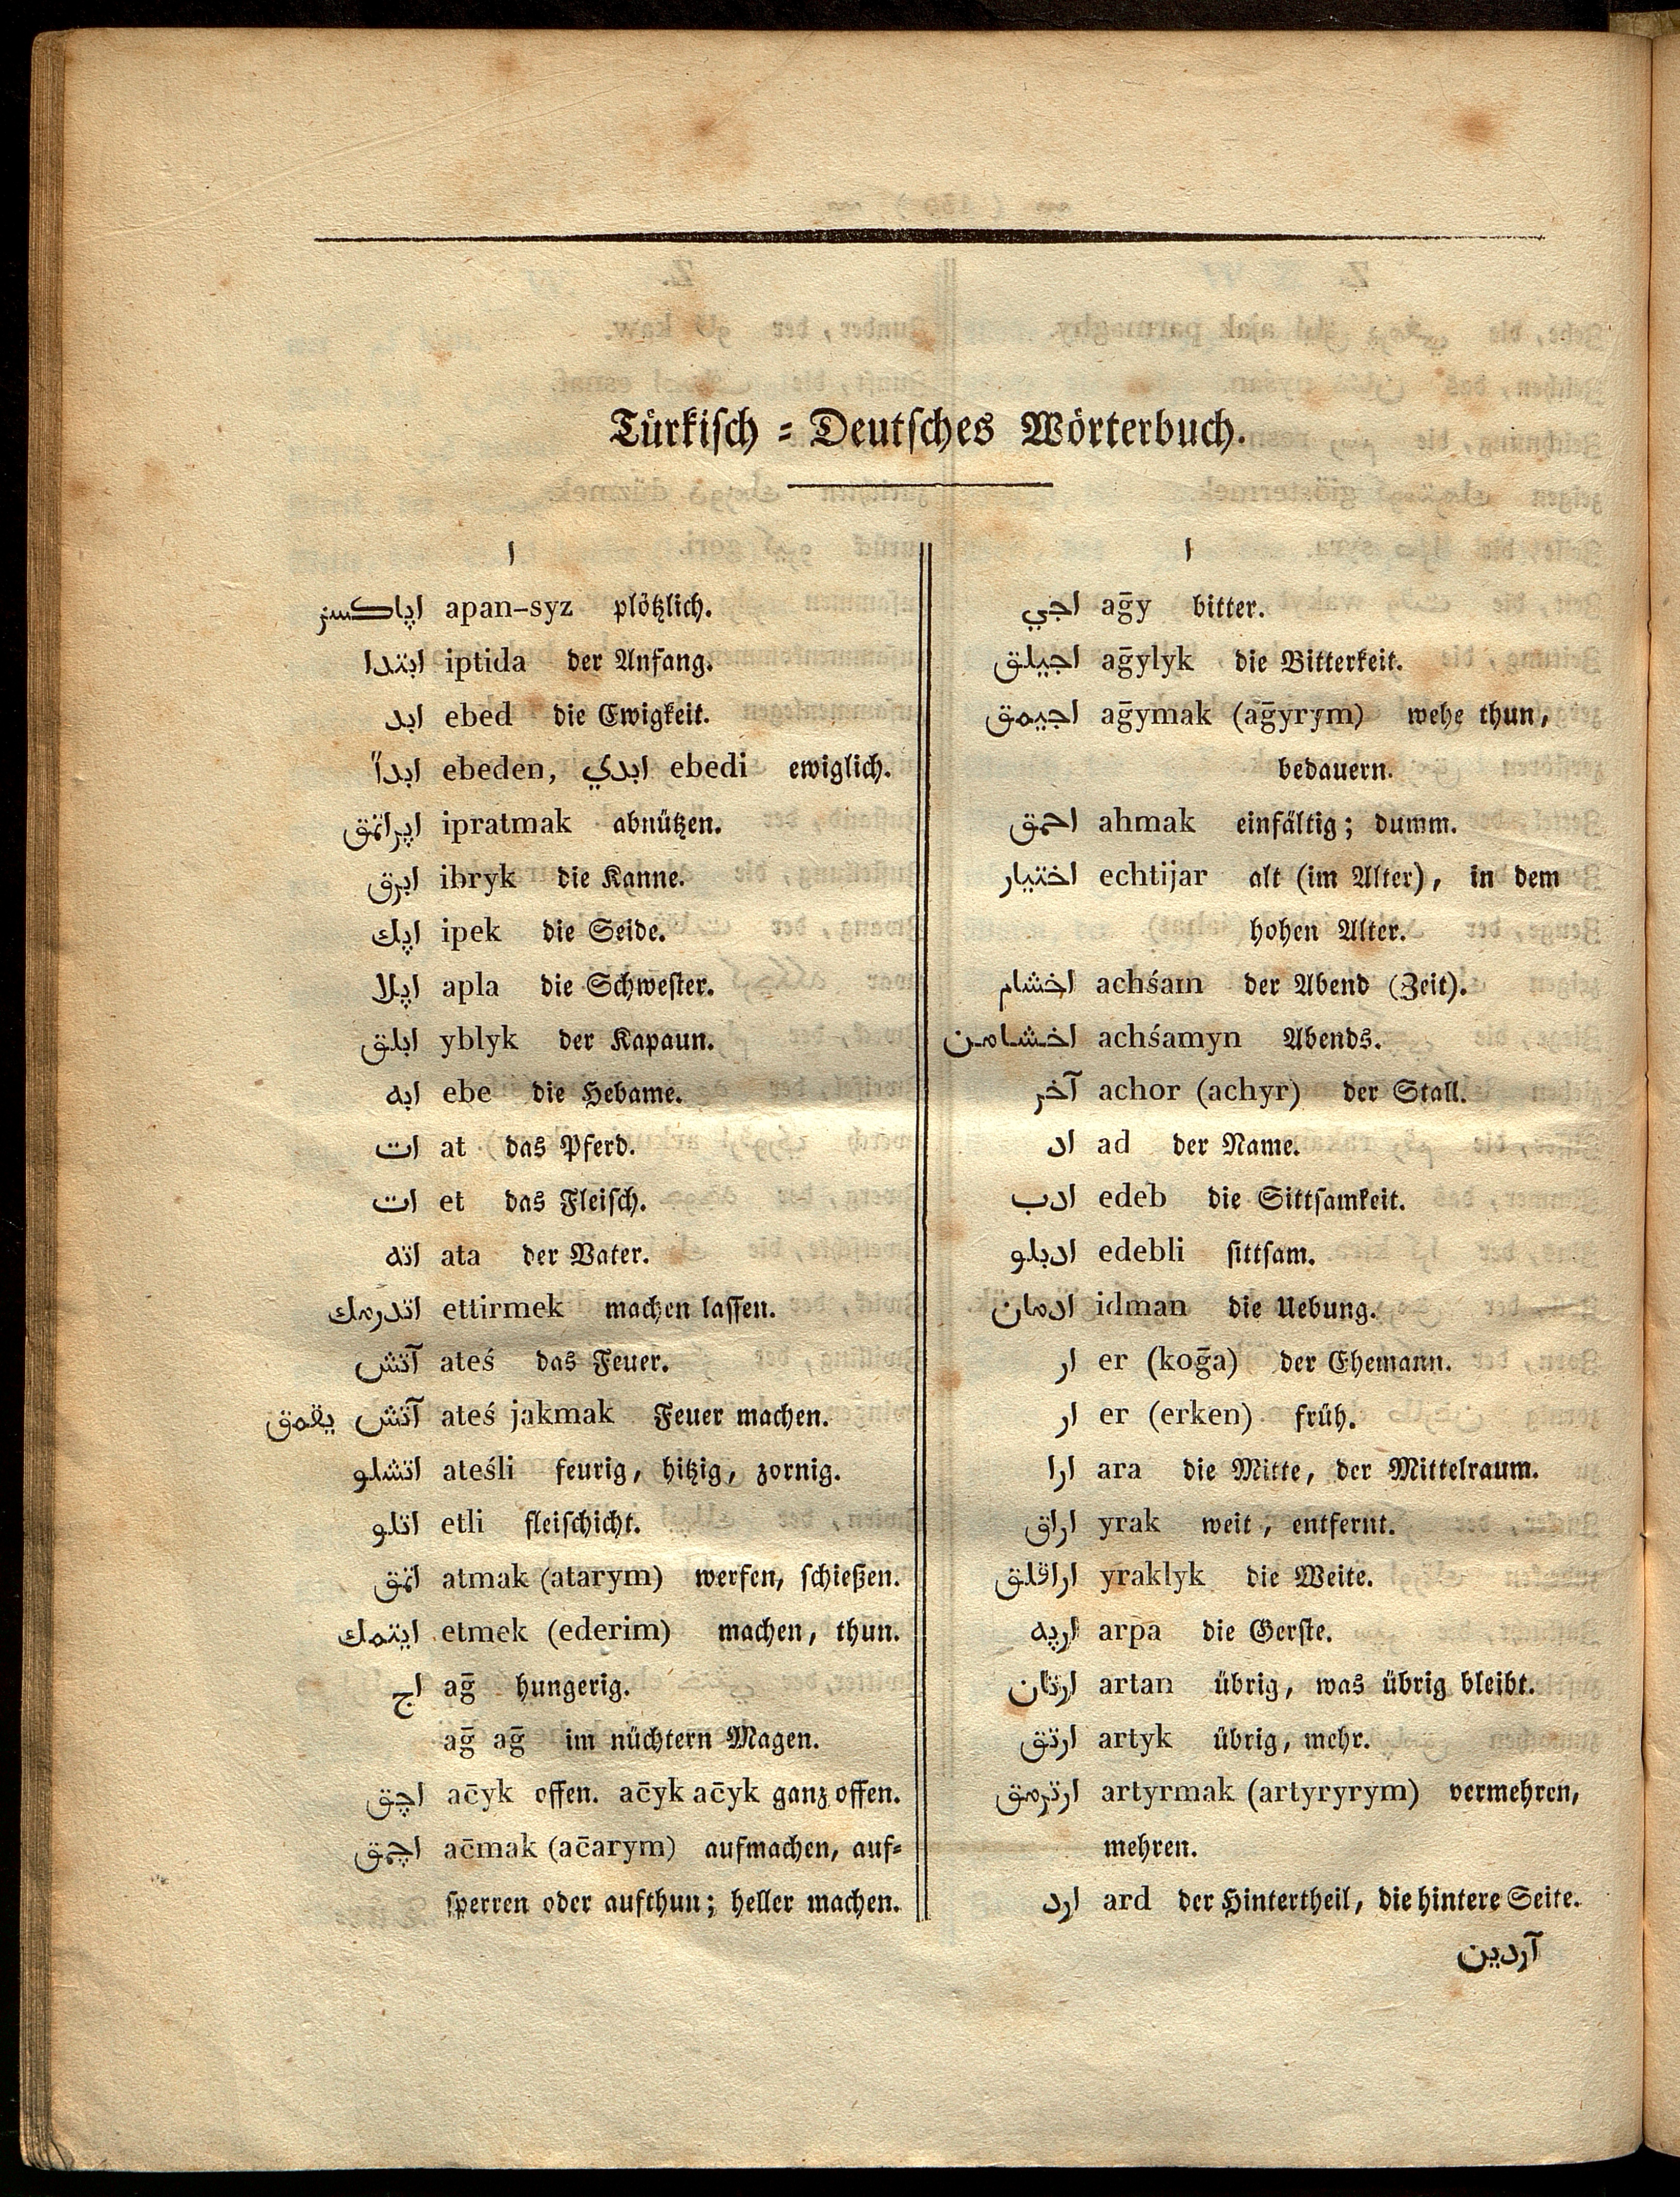 Türkisch = Deutsches Wörterbuch.
ا
اپاكسز apan-syz plötzlich.
ابتدا iptida der Anfang.
ابد ebed die Ewigkeit.
ابداً ebeden, ابدي ebedi ewiglich.
اپراتمق ipratmak abnützen.
ابرق ibryk die Kanne.
اپك ipek die Seide.
اپلا apla die Schwester.
ابلق yblyk der Kapaun.
ابه ebe die Hebame.
ات at das Pferd.
ات et das Fleisch.
اته ata der Vater.
اتدرمك ettirmek machen lassen.
آتش ateś das Feuer.
آتش يقمق ateś jakmak Feuer machen.
اتشلو ateśli feurig, hitzig, zornig.
اتلو etli fleischicht.
اتمق atmak (atarym) werfen, schießen.
ايتمك etmek (ederim) machen, thun.
اج aḡ hungerig.
aḡ aḡ im nüchtern Magen.
اچق ac̄yk offen. ac̄yk ac̄yk ganz offen.
اچمق ac̄mak (ac̄arym) aufmachen, auf=
sperren oder aufthun; heller machen.
ا
اجي aḡy bitter.
اجيلق aḡylyk die Bitterkeit.
اجيمق aḡymak (aḡyrym) wehe thun,
bedauern.
احمق ahmak einfältig; dumm.
اختيار echtijar alt (im Alter), in dem
hohen Alter.
اخشام achśam der Abend (Zeit).
اخشامن achśamyn Abends.
آخر achor (achyr) der Stall.
اد ad der Name.
ادب edeb die Sittsamkeit.
ادبلو edebli sittsam.
ادمان idman die Uebung.
ار er (koḡa) der Ehemann.
ار er (erken) früh.
ارا ara die Mitte, der Mittelraum.
اراق yrak weit, entfernt.
اراقلق yraklyk die Weite.
ارپه arpa die Gerste.
ارتان artan übrig, was übrig bleibt.
ارتق artyk übrig, mehr.
ارترمق artyrmak (artyryrym) vermehren,
mehren.
ارد ard der Hintertheil, die hintere Seite.
آردين